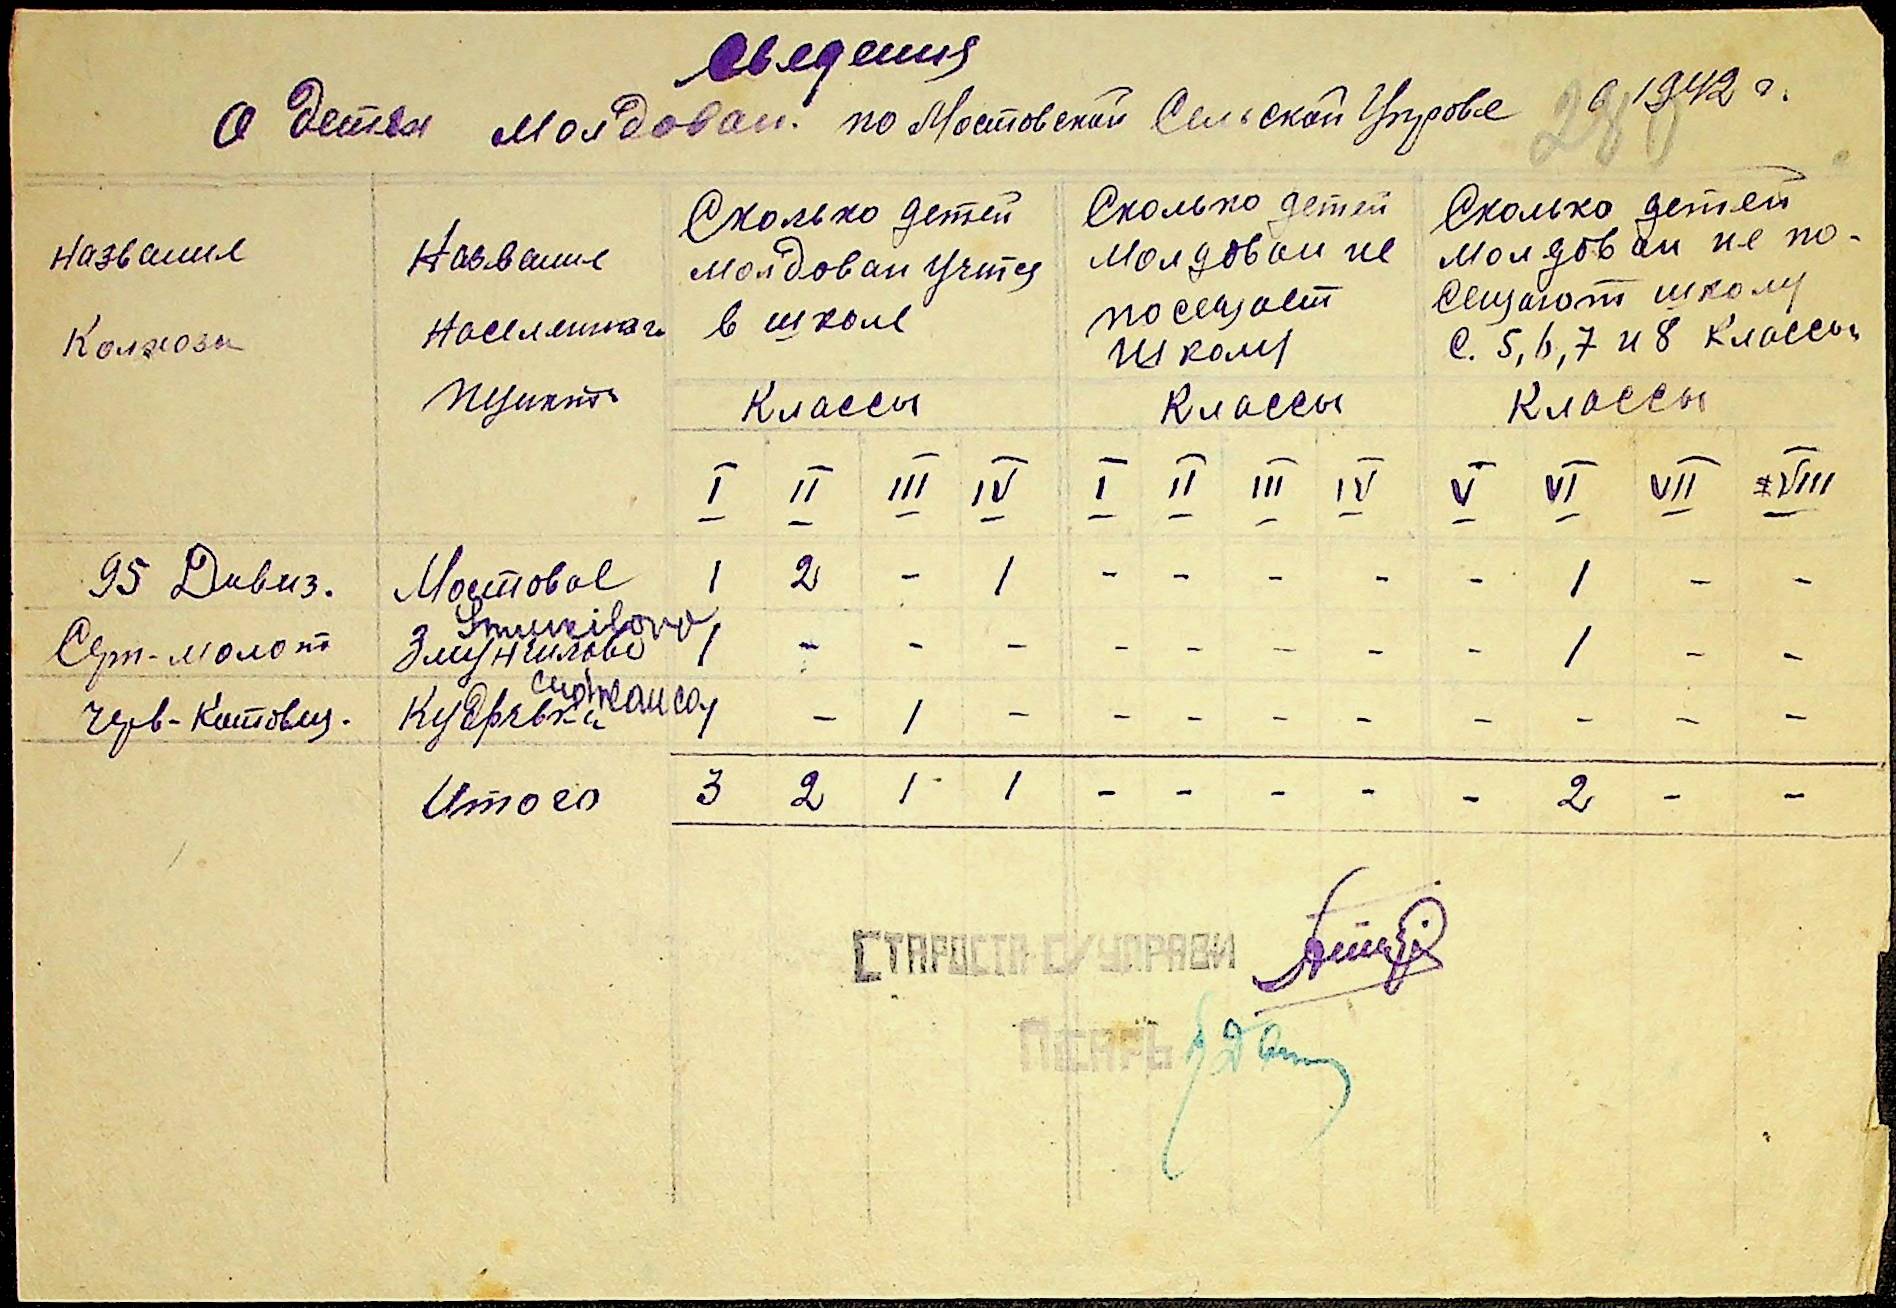 Сведения
О детях Молдован. по Мостовской Сельской Управе с 1942 г.
Название
Колхоза
Название
Населенного
Пункта
Сколько детей
Молдован учится
в школе
Сколько детей
Молдован не
посещает
школу
Сколько детей
Молдован не по-
сещают школу
с. 5, 6, 7 и 8 Классы
Классы Классы Классы
I II III IV I II III IV V VI VII VIII
95 Дивиз. Мостовое 1 2 - 1 - - - - - 1 - -
Smuncilovo
Серп-молот Змунчилово 1 - - - - - - - - 1 - -
Черв-Котовец. Кудрявка 1 - 1 - - - - - - - - -
Итого 3 2 1 1 - - - - - 2 - -
СТАРОСТА С/УПРАВИ
ПИСАРЬ